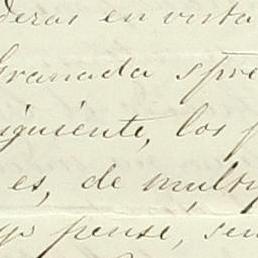 deras en vista
Granada spre
siguiente, los p
es, de multip
yo pensé, sen